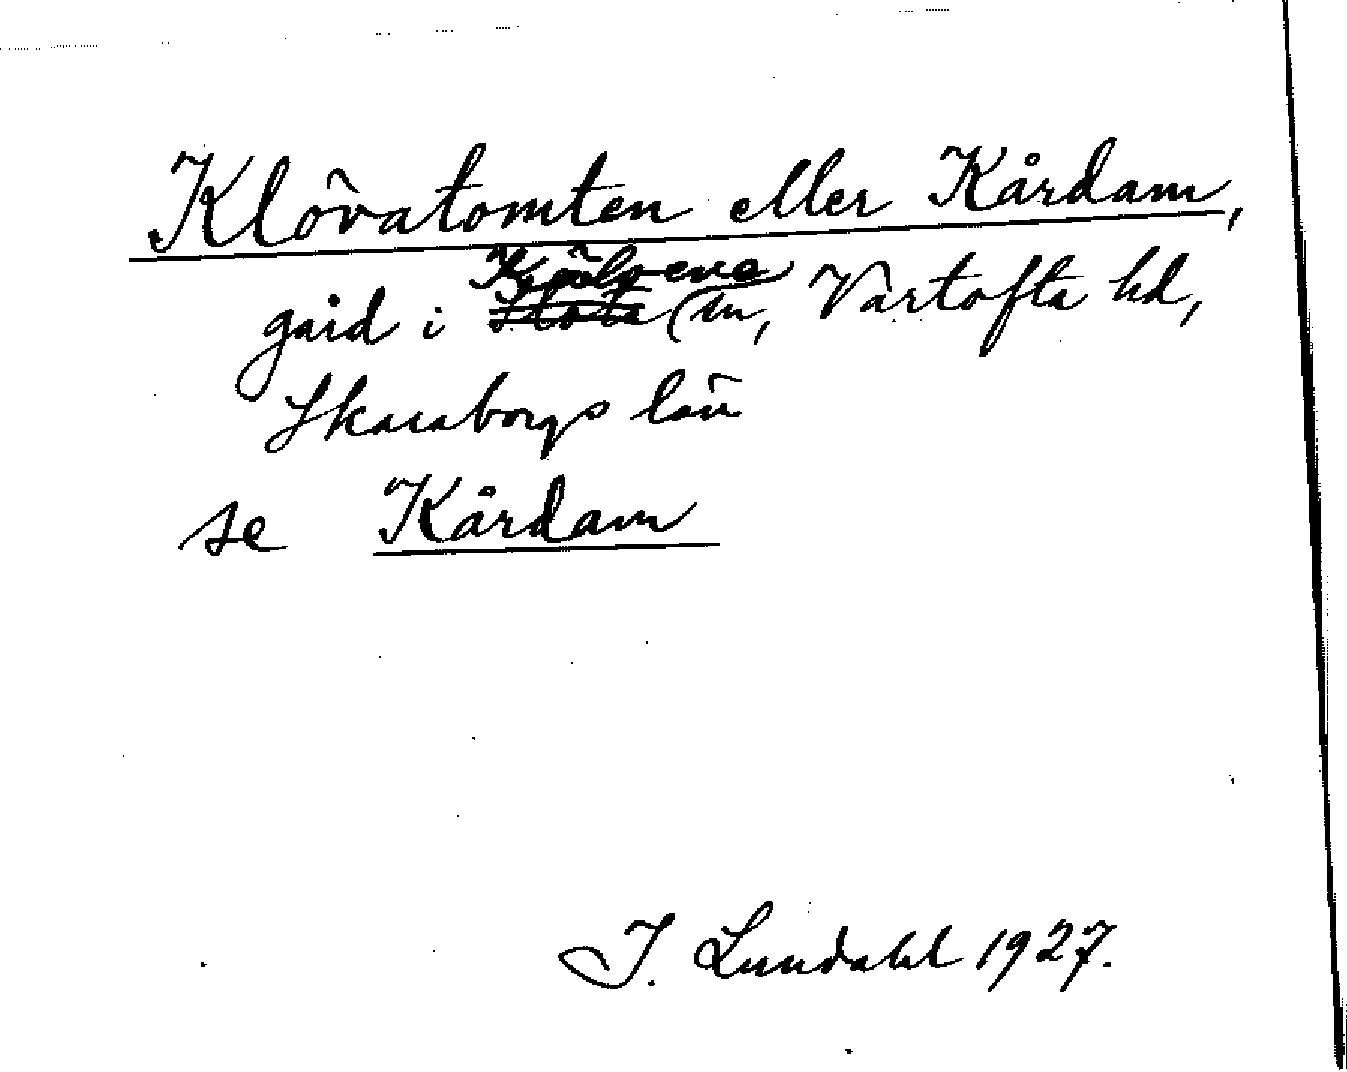 Klövatomten eller Kårdam,
gård i Kjälvene sn, Vartofta hd,
Skaraborgs län
se Kårdam
I. Lundahl 1927.